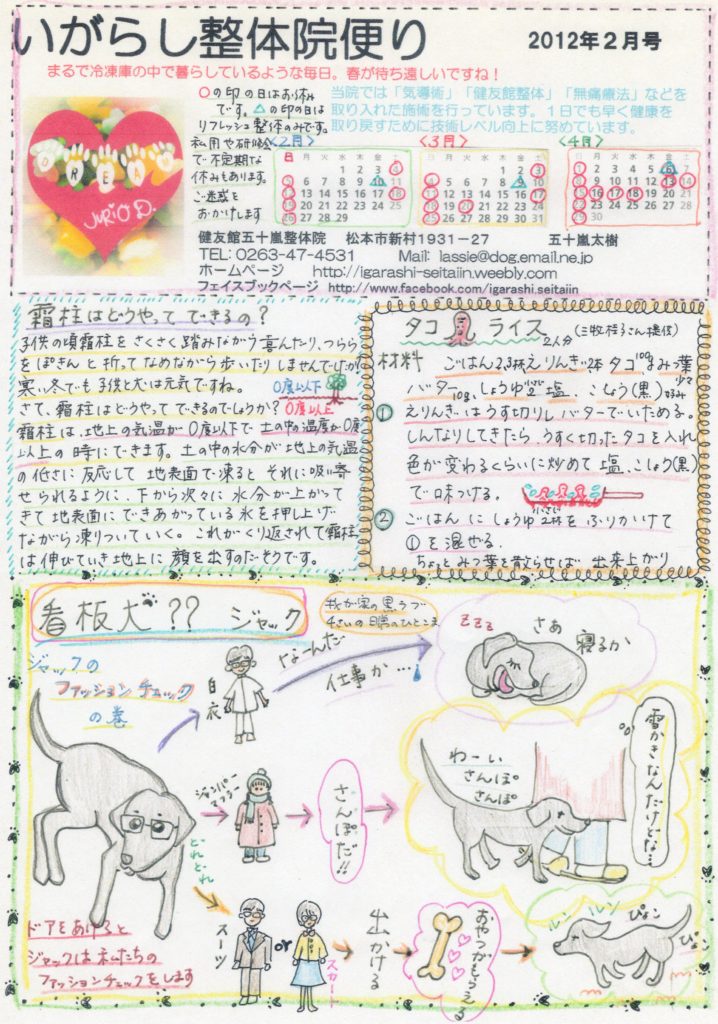 いがらし整体院便り
2012年2月号
まるで冷凍庫の中で暮らしているような毎日。春が待ち遠しいですね！
DREAD
JURIO D.
○の印の日はお休み
です。△の印の日は
リフレッシュ整体のみです。
私用や研修会
で不定期な
休みもあります。
ご迷惑を
おかけします
当院では「気導術」「健友館整体」「無痛療法」などを
取り入れた施術を行っています。1日でも早く健康を
取り戻すために技術レベル向上に努めています。
<2月>
日 月 火 水 木 金 土
1 2 3 4
5 6 7 8 9 10 11
12 13 14 15 16 17 18
19 20 21 22 23 24 25
26 27 28 29
<3月>
日 月 火 水 木 金 土
1 2 3
4 5 6 7 8 9 10
11 12 13 14 15 16 17
18 19 20 21 22 23 24
25 26 27 28 29 30 31
<4月>
日 月 火 水 木 金 土
1 2 3 4 5 6 7
8 9 10 11 12 13 14
15 16 17 18 19 20 21
22 23 24 25 26 27 28
29 30
健友館五十嵐整体院 松本市新村1931－27 五十嵐太樹
TEL: 0263-47-4531 Mail: lassie@dog.email.ne.jp
ホームページ http://igarashi-seitaiin.weebly.com
フェイスブックページ http://www.facebook.com/igarashi.seitaiin
霜柱はどうやってできるの？
子供の頃霜柱をさくさく踏みながう喜んだり、つらら
をぽきんと折ってなめながら歩いたりしませんでしたか
寒い冬でも子供と犬は元気ですね。
0度以下
さて、霜柱はどうやってできるのでしょうか？
0度以上
霜柱は、地上の気温が0度以下で土の中の温度が0度
以上の時にできます。土の中の水分が地上の気温
の低さに反応して地表面で凍ると それに吸い寄
せられるように、下から次々に水分が上がって
きて地表面にできあがっている氷を押し上げ
ながら凍りついていく。これがくり返されて霜柱
は伸びていき地上に顔を出すのだそうです。
タコライス
2人分
(三牧桂子さん提供)
材料 ごはん2,3杯えりんぎ2本タコ100gみつ葉
バター10g、しょうゆ小2塩、こしょう(黒)少々
好み
① えりんぎはうす切りしバターでいためる。
しんなりしてきたら、うすく切ったタコを入れ
色が変わるくらいに炒めて塩、こしょう(黒)
で味つける。
② ごはんにしょうゆ小さじ2杯をふりかけて
①を混ぜる
ちょっとみつ葉を散らせば、出来上がり
看板犬？？ ジャック
我が家の黒ラブ
4さいの日常のひとこま
ジャックの
ファッションチェック
の巻
白衣
なーんだ
仕事か…
zzz
さあ
寝るか
ジャンパー
マフラー
さんぽだ!!
わーい
さんぽ
さんぽ
雪かきなんだけどな…
どれどれ
スーツ
or
スカート
出かける
おやつがもらえる
ルン ルン
ぴょン
ぴょン
ドアをあけると
ジャックは私たちの
ファッションチェックをします